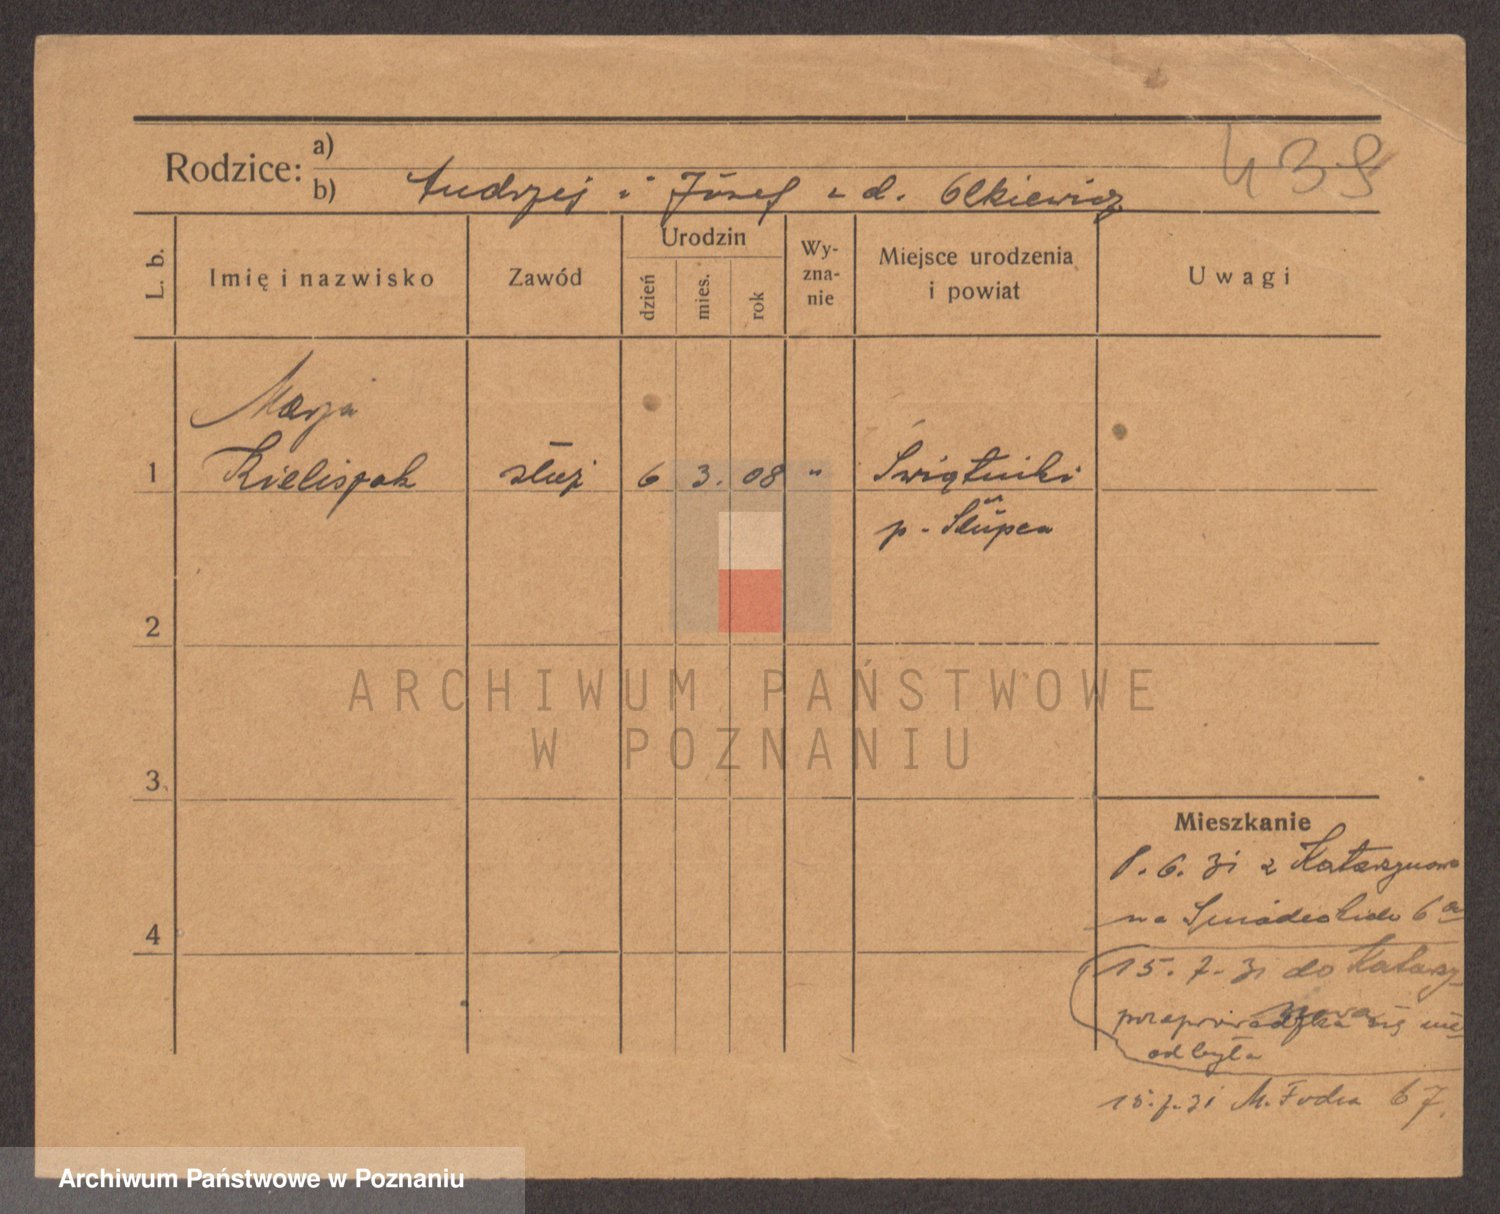 439
Rodzice: a)
b) Andrzej i Józef z d. Olkiewicz
L. b.
Imię i nazwisko
Zawód
Urodzin
dzień
mies.
rok
Wy-
zna-
nie
Miejsce urodzenia
i powiat
Uwagi
Marja
1 Kielispak służ 6 3. 08 " Świątniki
p. Słupca
2
3.
4
Mieszkanie
8. 6. 31 z Katarzynowo
na 6a
15. 7. 31 do Katarzy-
nowa
przeprowadzka się nie
odbyła
15. 7. 31 M. Focha 67.
ARCHIWUM PAŃSTWOWE
W POZNANIU
Archiwum Państwowe w Poznaniu